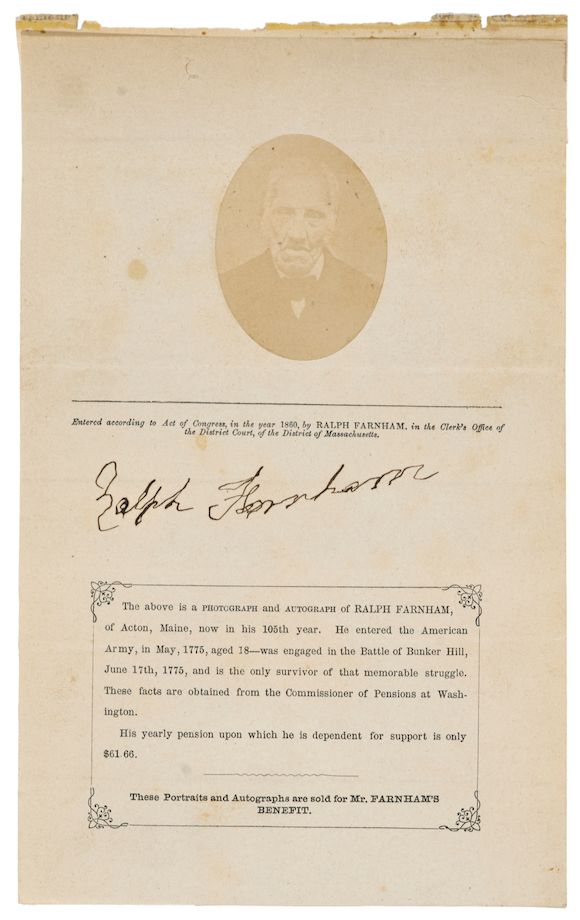 Entered according to Act of Congress, in the year 1860, by RALPH FARNHAM, in the Clerk's Office of
the District Court, of the District of Massachusetts.
Ralph Farnham
The above is a PHOTOGRAPH and AUTOGRAPH of RALPH FARNHAM,
of Acton, Maine, now in his 105th year. He entered the American
Army, in May, 1775, aged 18—was engaged in the Battle of Bunker Hill,
June 17th, 1775, and is the only survivor of that memorable struggle.
These facts are obtained from the Commissioner of Pensions at Wash-
ington.
His yearly pension upon which he is dependent for support is only
$61.66.
These Portraits and Autographs are sold for Mr. FARNHAM'S
BENEFIT.